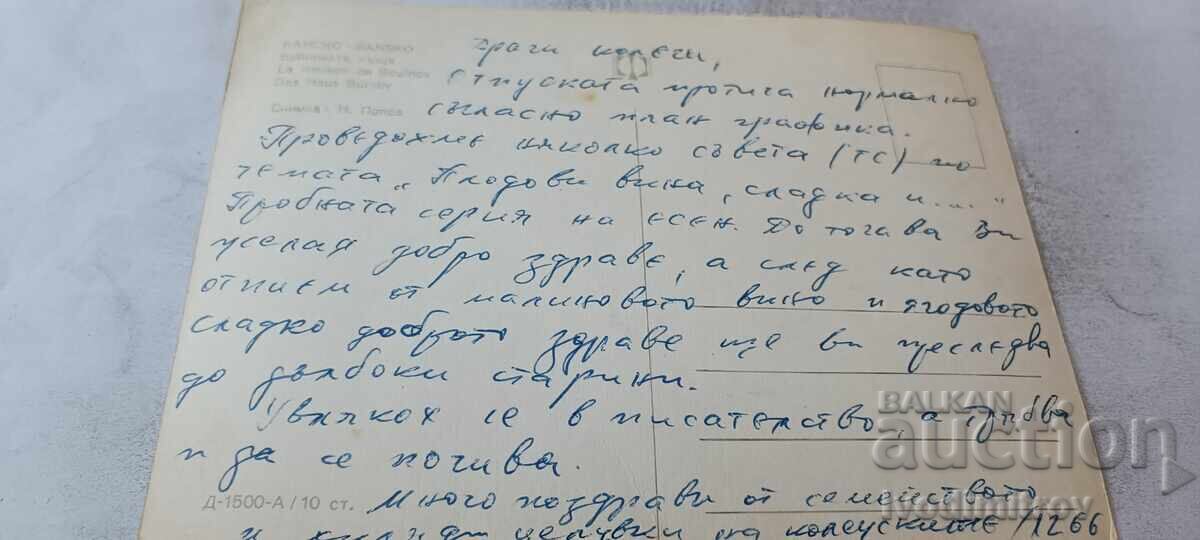 БАНСКО - BANSKO
Das Haus Burov
Снимка: Н. Попов
Драги колеги,
Отпуската протича нормално
съгласно план графика.
Проведохме няколко съвета (ТС) по
темата „Плодови вина, сладка и...."
Пробната серия на есен. До тогава Ви
желая добро здраве, а след като
отпием от малиновото вино и ягодовото
сладко доброто здраве ще ви преследва
до дълбоки старини.
Увлякох се в писателство, а трябва
и да се почива.
Д-1500-А/10 ст.
Много поздрави от семейството
целувки на колежките /1266
BALKAN
auction
ivodimitrov